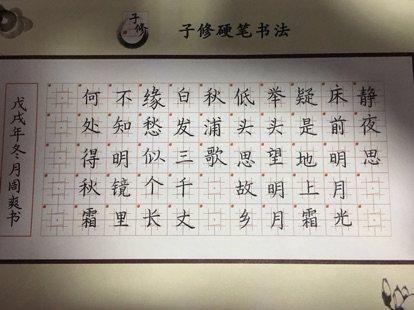 子修
子修硬笔书法
静夜思
床前明月光
疑是地上霜
举头望明月
低头思故乡
秋浦歌
白发三千丈
缘愁似个长
不知明镜里
何处得秋霜
戊戌年冬月周爽书